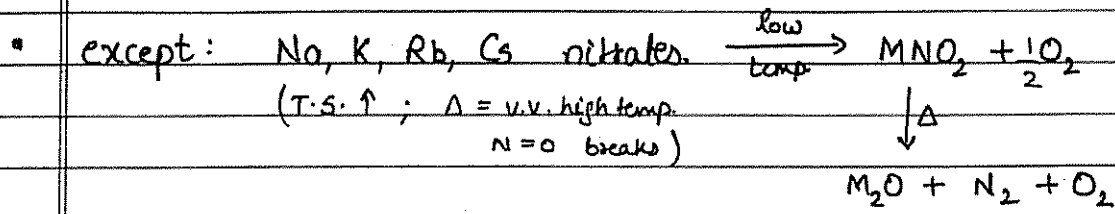 • except: Na, K, Rb, Cs nitrates. low temp. → MNO₂ + 1/2 O₂
(T.S. ↑ ; Δ = v.v. high temp. ↓ Δ
N=O breaks)
M₂O + N₂ + O₂